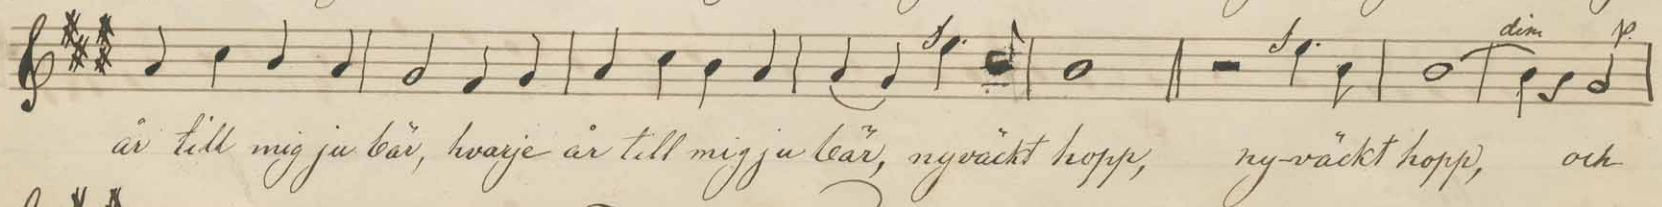 f f dim p.
år till mig ju bär, hvarje år till mig ju bär, nyväckt hopp, ny-väckt hopp, och